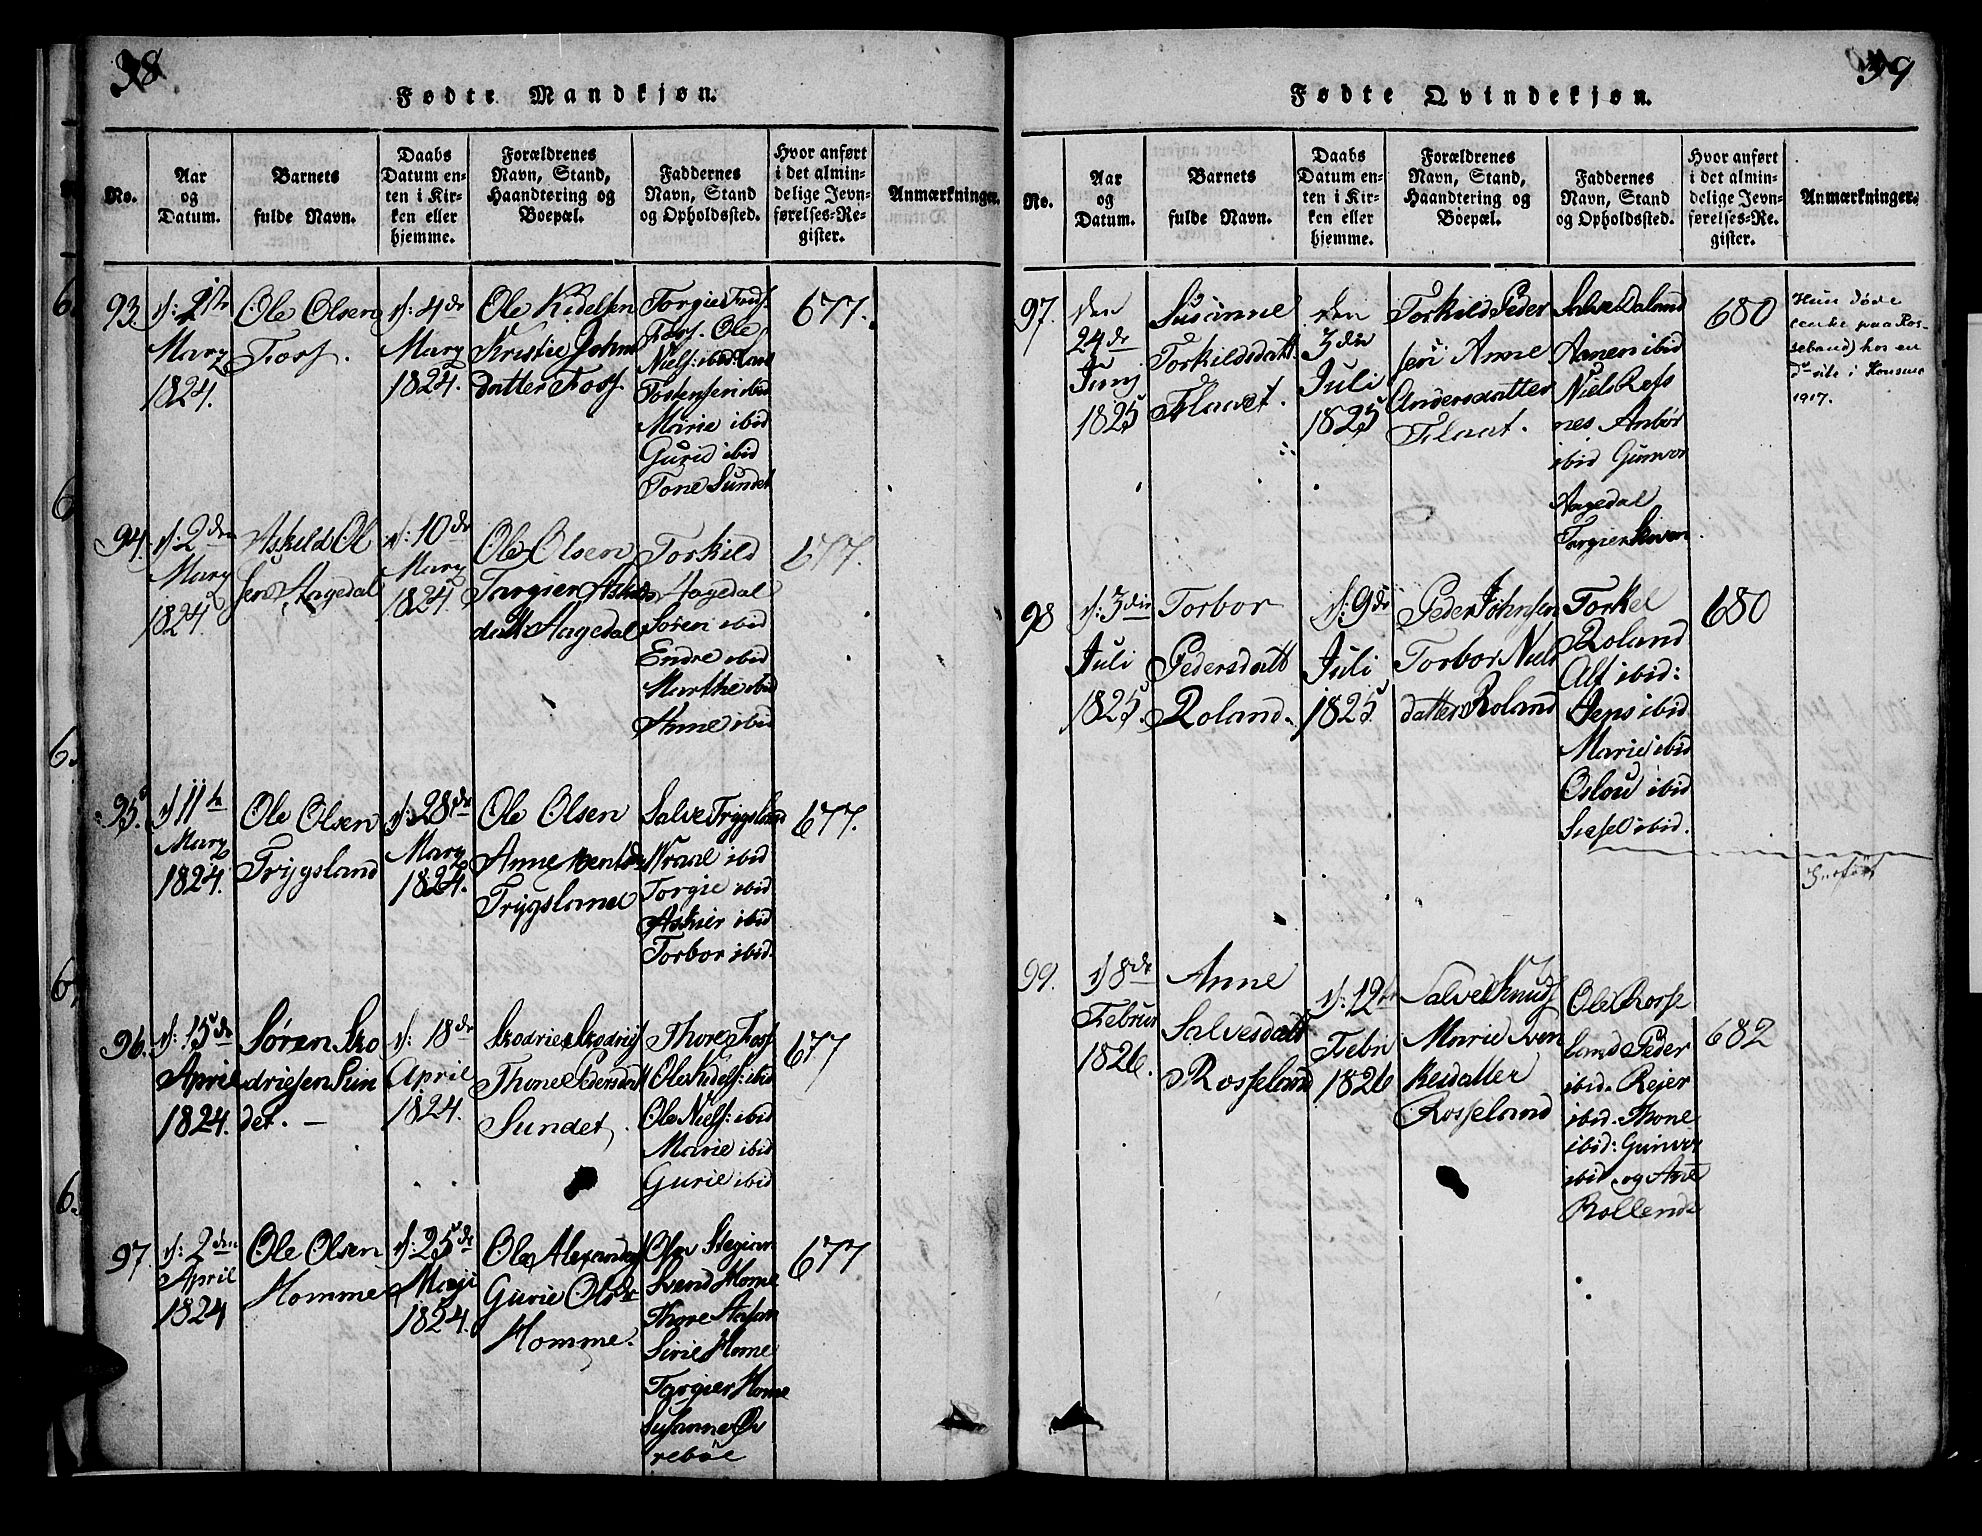 38
Fødte Mandkjøn.
No.
Aar
og
Datum.
Barnets
fulde Navn.
Daabs
Datum en-
ten i Kir-
ken eller
hjemme.
Forældrenes
Navn, Stand,
Haandtering og
Boepæl.
Faddernes
Navn, Stand
og Opholdssted.
Hvor anført
i det almin-
delige Jevn-
førelses-Re-
gister.
Anmærkninger.
93.
Marz
1824.
Ole Olsen
Foss.
d: 4de
Marz
1824.
Ole Kidelsen
Kristie John
datter Foss
Torgie Foss
Foss. Ole
Niels: ibid Lars
Tostensen ibid
Marie ibid
Gurid ibid
Tone Sundet
677.
94.
d: 2den
Marz
1824.
Askild Ol
sen Aagedal
d: 10de
Marz
1824.
Ole Olsen
Targier Askils
datt Aagedal
Torkild
Aagedal
Søren ibid
Endre ibid
Marthe ibid
Anne ibid
677.
95.
d 11te
Marz
1824.
Ole Olsen
Trygsland
d: 28de
Marz
1824.
Ole Olsen
Anne
Trygsland
Salve Trygsland
Wraal ibid
Torgie ibid
Askier ibid
Torbor ibid.
677.
96.
d: 15de
April
1824.
Søren Sto
driesen Sun
det. –
d: 18de
April
1824.
Thone Pedersdatt
Sundet.
Thore Foss
Ole Kidels: ibid
Ole Niels: ibid
Marie ibid
Gurie ibid
677
97.
d: 2den
April
1824
Ole Olsen
Homme
d: 25de
Maji
1824.
Ole Alexands
Gurie Olsdr
Homme.
Svend Home
Thore
Sirie Home
Targier Home
Susanne Øv
rebøe
677
39
Fødte Qvindekjøn.
No.
Aar
og
Datum.
Barnets
fulde Navn.
Daabs
Datum en-
ten i Kir-
ken eller
hjemme.
Forældrenes
Navn, Stand,
Haandtering og
Boepæl.
Faddernes
Navn, Stand
og Opholdssted.
Hvor anført
i det almin-
delige Jevn-
førelses-Re-
gister.
Anmærkninger.
97.
den
24de
Junj
1825
Susanne
Torkildsdatt
Flaaet.
den
3die
Juli
1825
Torkild Peder
sen Anne
Andersdatter
Flaat.
Salve Daland
Aanen ibid
Niels Refs
nes Anbør
ibid Gunvor
Aagedal
Targier Skiven
680
Hun døde
enke paa Ros-
seland hos en
i
1917.
98
d: 3die
Juli
1825.
Torbor
Pedersdatt
Roland.
d: 9de
Juli
1825.
Peder Johnsen
Torbor Niels
datter Roland
Torkel
Roland
Alf ibid:
Jens ibid
Marie ibid
Oslou ibid
Sissel ibid.
680
99.
d 8de
Februar
1826.
Anne
Salvesdatt
Rosseland
d: 12te
Febr
1826
Salve Knuds
Marie Iven
kesdatter
Rosseland
Ole Rosse
land Peder
ibid. Reier
ibid. Thone
ibid: Gunvor
ibid og Ane
Rollende
682